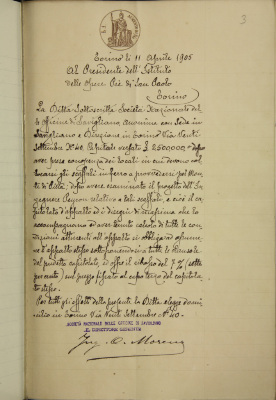 3
Torino li 11 Aprile 1905
Al Presidente dell'Istituto
delle Opere Pie di San Paolo
Torino
La Ditta sottoscritta Società Nazionale delle
Officine di Savigliano Anonima con Sede in
Savigliano e Direzione in Torino Via Venti
Settembre N° 40 Capitale versato £ 2.500.000 dopo
aver preso conoscenza dei locali in cui devono col
locarsi gli scaffali in ferro a provvedersi pel Mon
te di Pietà, dopo avere esaminato il progetto dell'In
gegnere relativo a tali scaffali, e cioè il ca
pitolato d'appalto ed i disegni di che lo
accompagnano, e aver tenuto calcolo di tutte le con
dizioni afferenti all'appalto si obbliga di assumere
l'appalto stesso sotto
del predetto capitolato, ed offre il ribasso del 7 % (sette
per cento) sul prezzo fissato al capo terzo del capitola
to stesso.
Per tutti gli effetti della presente la Ditta elegge domi
cilio in Torino Via Venti Settembre N° 40.
SOCIETÀ NAZIONALE DELLE OFFICINE DI SAVIGLIANO
IL DIRETTORE
Ing. A. Moreno